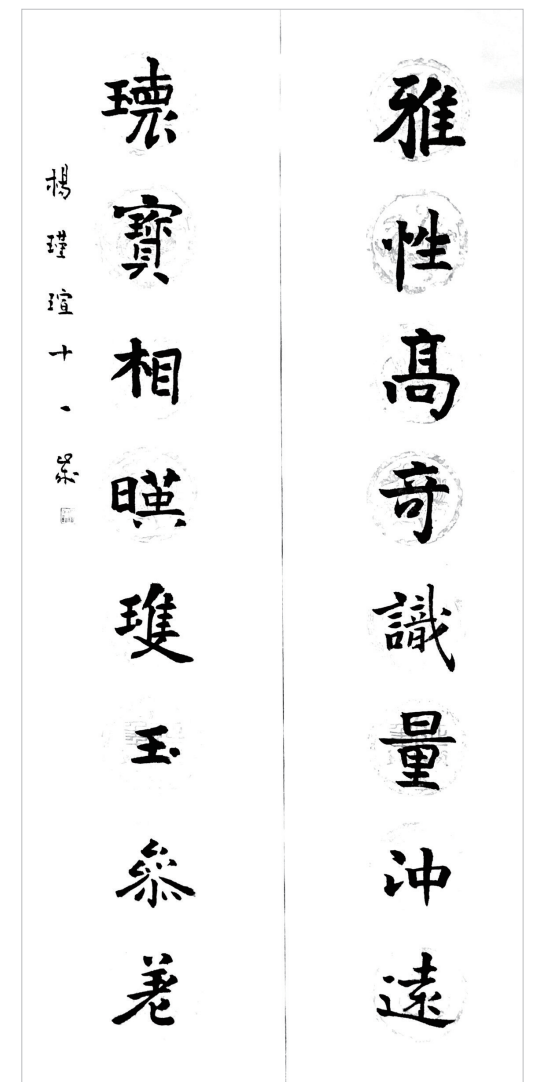 雅性高奇識量沖遠
瓌寶相暎璡玉參差
楊瑾瑄十一歲